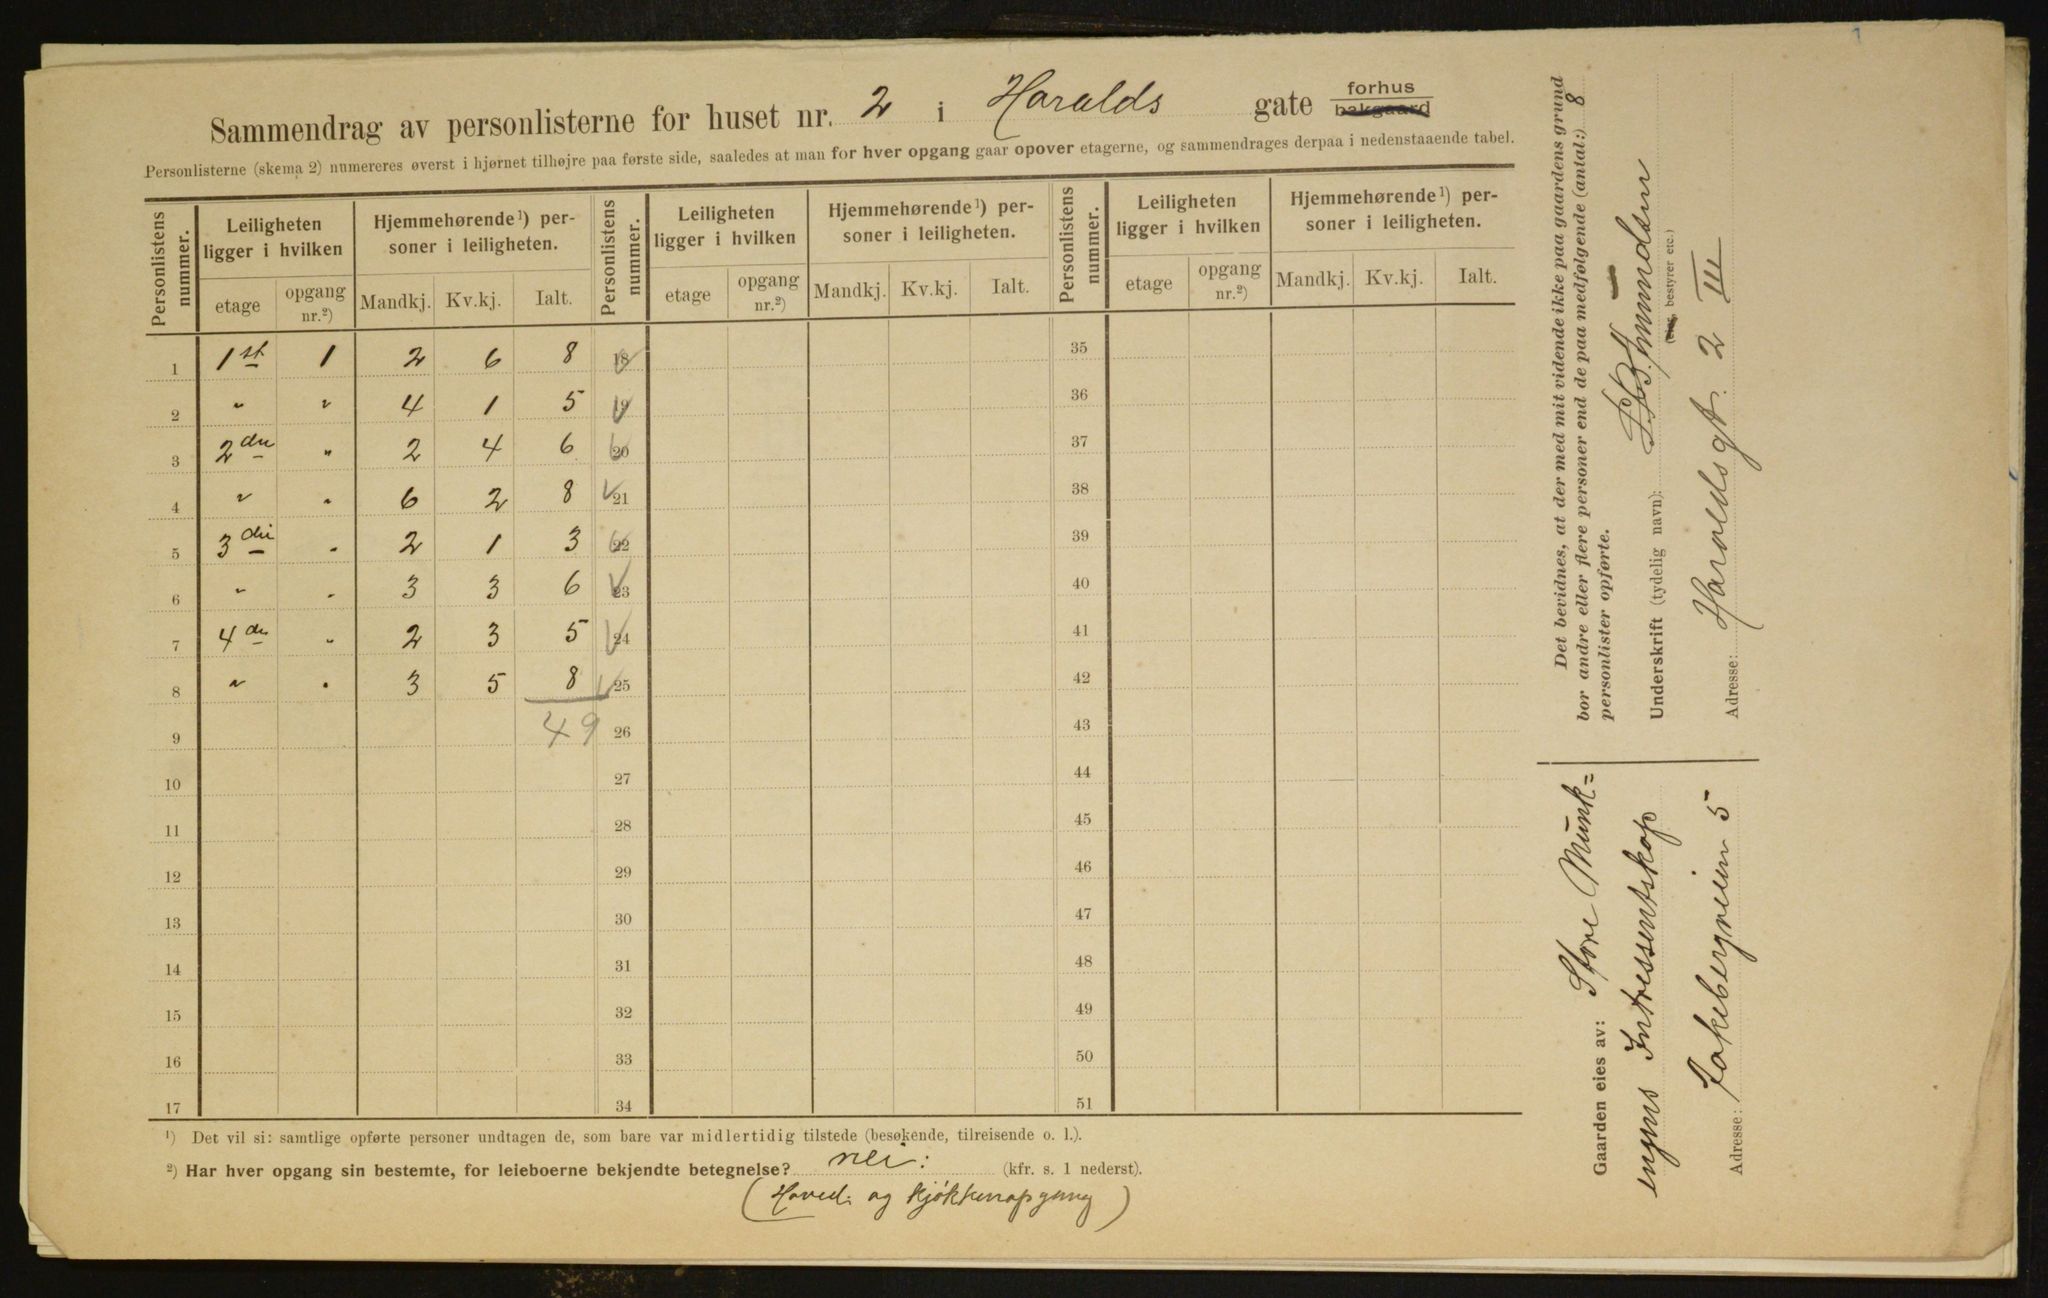 Sammendrag av personlisterne for huset nr. 2 i Haralds gate forhus bakgaard
Personlisterne (skema 2) numereres øverst i hjørnet tilhøjre paa første side, saaledes at man for hver opgang gaar opover etagerne, og sammendrages derpaa i nedenstaaende tabel.
Personlistens nummer. Leiligheten ligger i hvilken Hjemmehørende¹) personer i leiligheten. Personlistens nummer. Leiligheten ligger i hvilken Hjemmehørende¹) personer i leiligheten. Personlistens nummer. Leiligheten ligger i hvilken Hjemmehørende¹) personer i leiligheten.
etage opgang nr.²) Mandkj. Kv.kj. Ialt. etage opgang nr.²) Mandkj. Kv.kj. Ialt. etage opgang nr.²) Mandkj. Kv.kj. Ialt.
1 1st 1 2 6 8 18 35
2 " " 4 1 5 19 36
3 2den " 2 4 6 20 37
4 " " 6 2 8 21 38
5 3die " 2 1 3 22 39
6 " " 3 3 6 23 40
7 4de " 2 3 5 24 41
8 " " 3 5 8 25 42
9 49 26 43
10 27 44
11 28 45
12 29 46
13 30 47
14 31 48
15 32 49
16 33 50
17 34 51
¹) Det vil si: samtlige opførte personer undtagen de, som bare var midlertidig tilstede (besøkende, tilreisende o. l.).
²) Har hver opgang sin bestemte, for leieboerne bekjendte betegnelse? nei: (kfr. s. 1 nederst).
(Hoved- og kjøkkenopgang)
Det bevidnes, at der med mit vidende ikke paa gaardens grund
bor andre eller flere personer end de paa medfølgende (antal:) 8
personlister opførte.
Underskrift (tydelig navn):
(eier, bestyrer etc.)
Adresse: Haraldsgt. 2 III
Gaarden eies av: Store Munk=
engens Intressentskap
Adresse: Jakebergveien 5